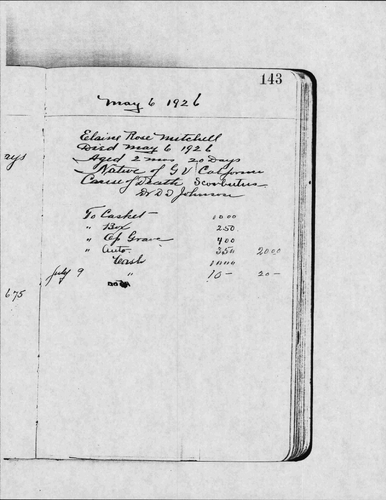 143
May 6 1926
Elaine Rose Mitchell
Died May 6 1926
Aged 2 mos 20 Days
Native of G V California
Cause of Death Scorbutus
Dr D D Johnson
ays
To Casket 10 00
" Box 2 50
" Op Grave 4 00
" Auto 3 50 20 00
Cash 10 00
July 9 " 10 - 20 -
675